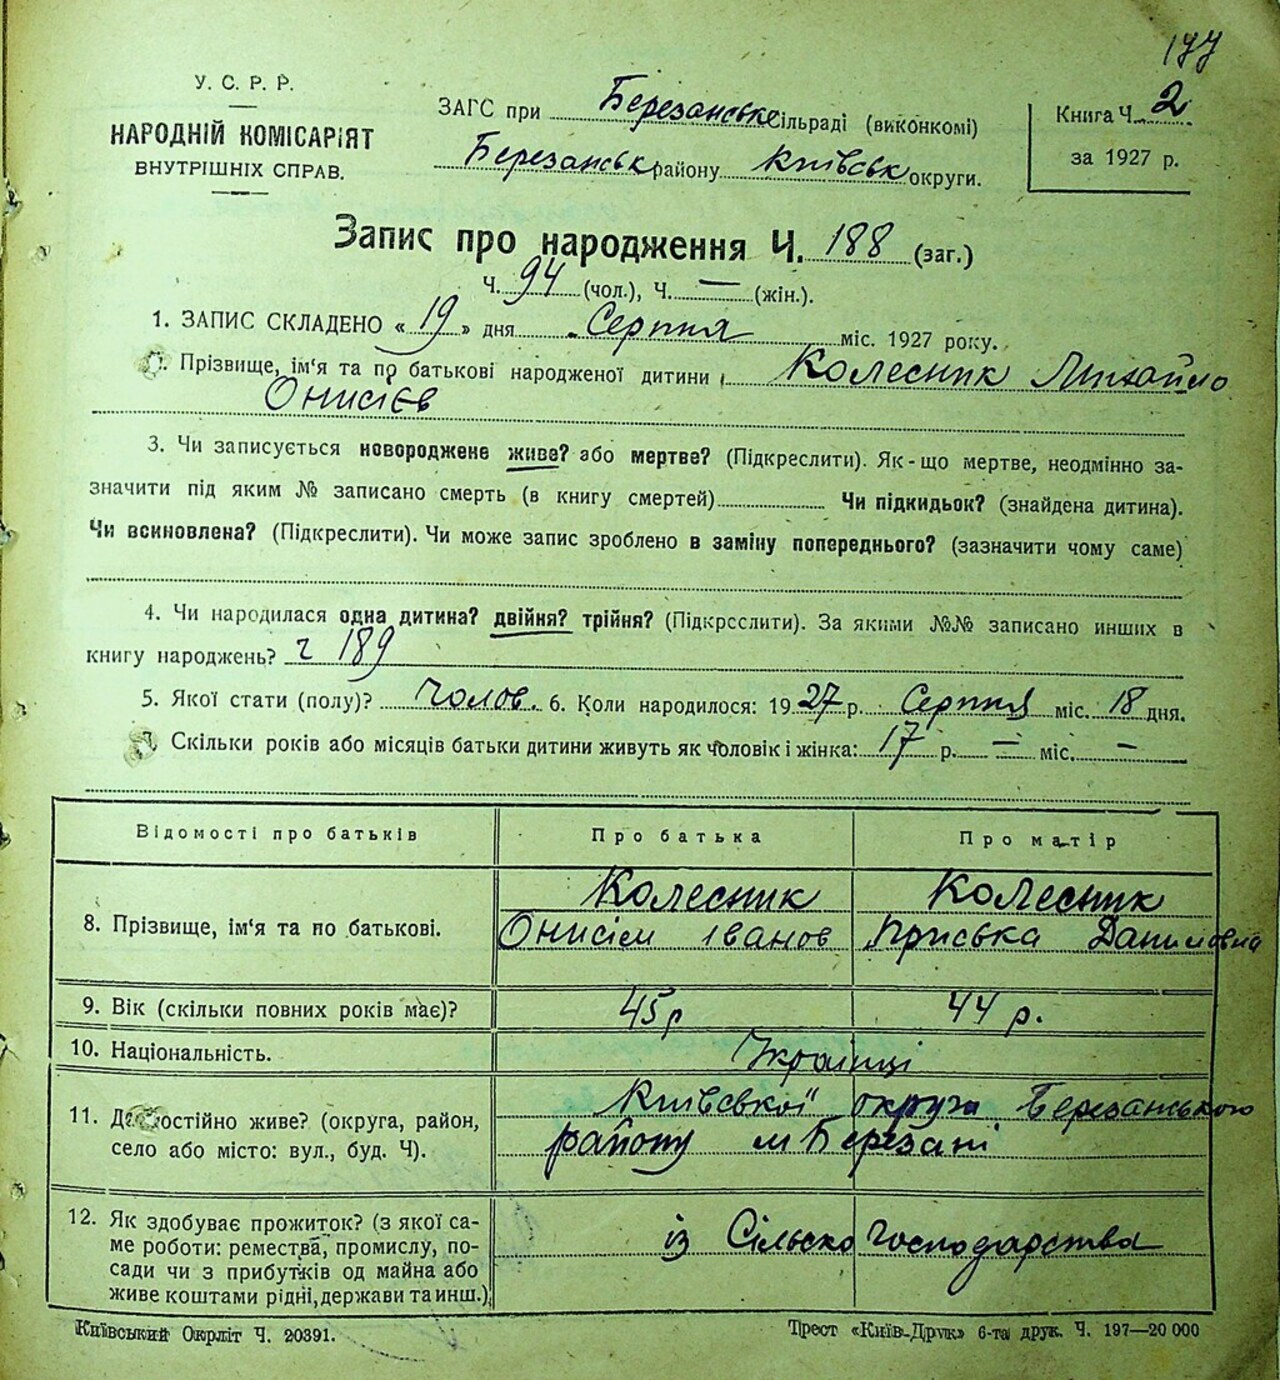 177
У. С. Р. Р.
НАРОДНІЙ КОМІСАРІЯТ
ВНУТРІШНІХ СПРАВ.
ЗАГС при Березанське сільраді (виконкомі)
Березанськ району Київськ округи.
Книга Ч. 2
за 1927 р.
Запис про народження Ч. 188 (заг.)
Ч. 94 (чол.), Ч. — (жін.).
1. ЗАПИС СКЛАДЕНО « 19 » дня Серпня міс. 1927 року.
Прізвище, ім'я та по батькові народженої дитини Колесник Михайло
Онисієв
3. Чи записується новороджене живе? або мертве? (Підкреслити). Як-що мертве, неодмінно за-
значити під яким № записано смерть (в книгу смертей) Чи підкидьок? (знайдена дитина).
Чи всиновлена? (Підкреслити). Чи може запис зроблено в заміну попереднього? (зазначити чому саме)
4. Чи народилася одна дитина? двійня? трійня? (Підкреслити). За якими №№ записано инших в
книгу народжень? ч 189
5. Якої стати (полу)? Чолов. 6. Коли народилося: 1927 р. Серпня міс. 18 дня.
Скільки років або місяців батьки дитини живуть як чоловік і жінка: 17 р. — міс. —
Відомості про батьків Про батька Про матір
8. Прізвище, ім'я та по батькові.
Колесник Колесник
Онисім Іванов Приська Даниловна
9. Вік (скільки повних років має)? 45 р 44 р.
10. Національність. Українці
11. Де постійно живе? (округа, район,
село або місто: вул., буд. Ч).
Київської округи Березанського
району м Березані
12. Як здобуває прожиток? (з якої са-
ме роботи: ремества, промислу, по-
сади чи з прибутків од майна або
живе коштами рідні, держави та инш.)
із Сільско Господарства
Київський Окрліт Ч. 20391.
Трест «Київ-Друк» 6-та друк. Ч. 197—20 000